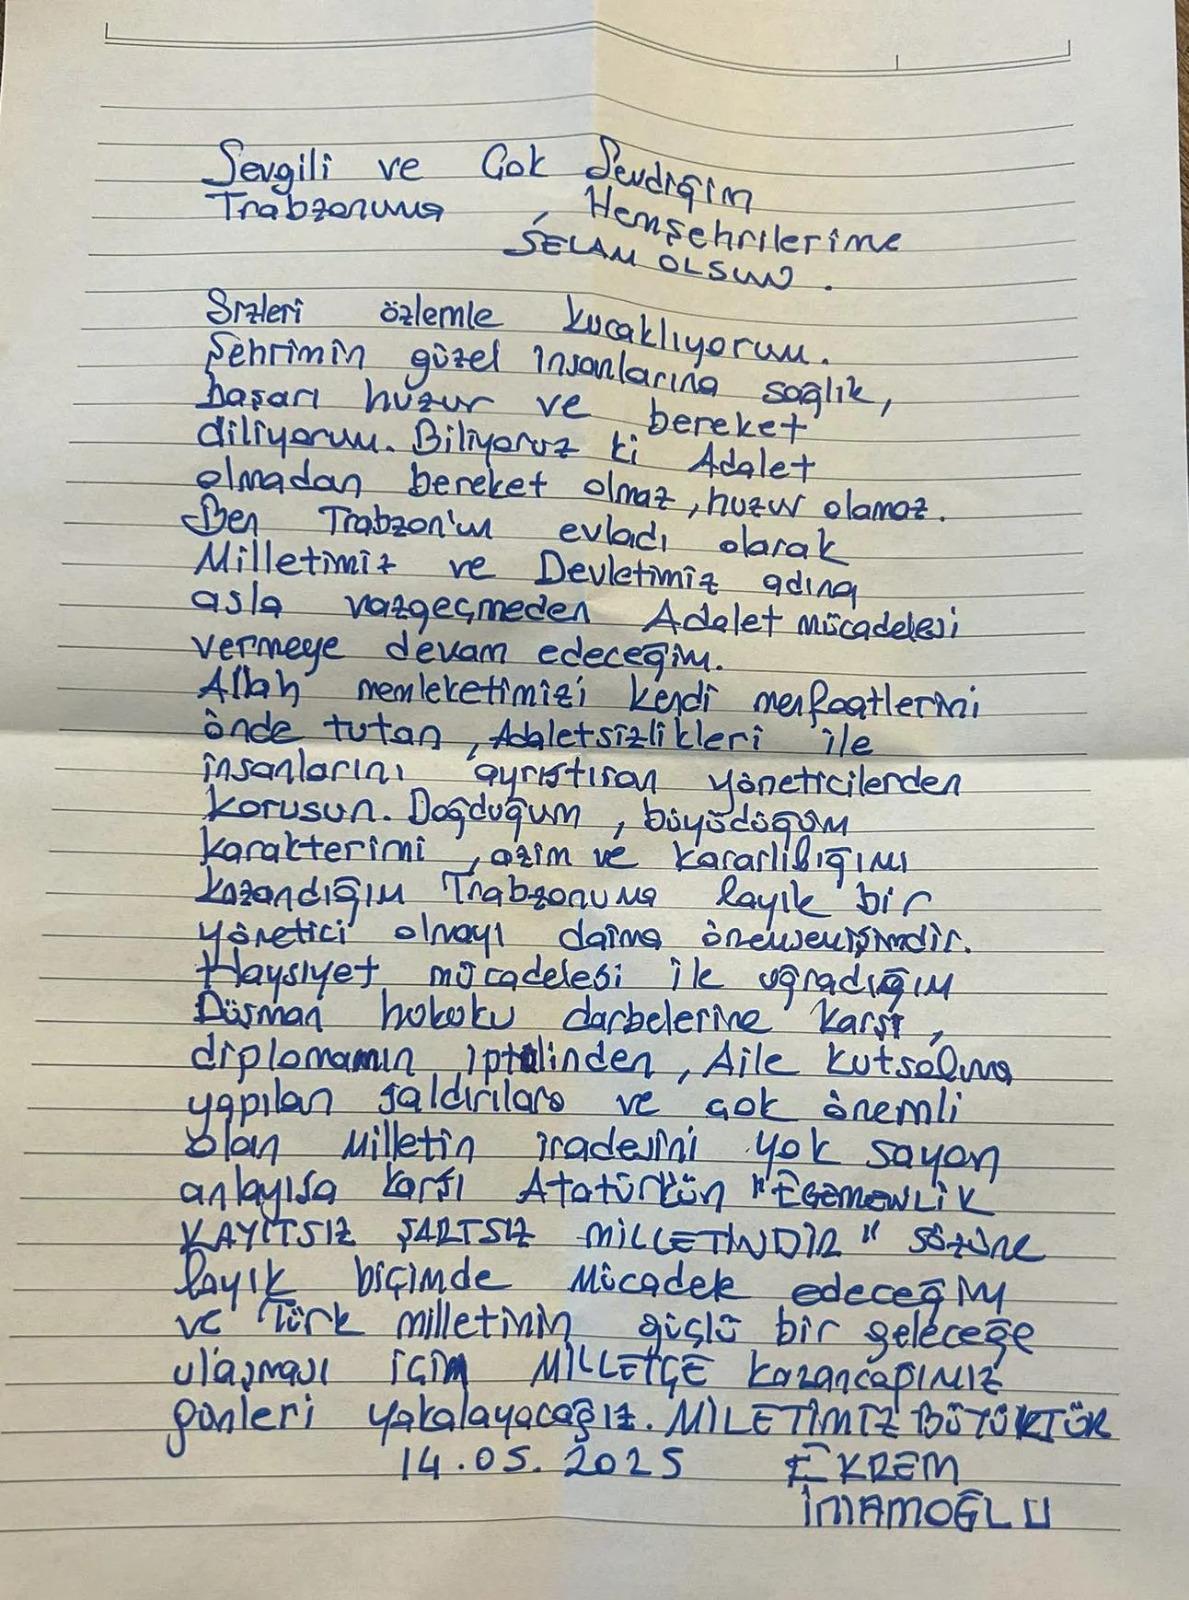 Sevgili ve Çok Sevdiğim
Trabzonuma, Hemşehrilerime
SELAM OLSUN.
Sizleri özlemle kucaklıyorum.
Şehrimin güzel insanlarına sağlık,
başarı huzur ve bereket
diliyorum. Biliyoruz ki Adalet
olmadan bereket olmaz, huzur olamaz.
Ben Trabzon'un evladı olarak
Milletimiz ve Devletimiz adına
asla vazgeçmeden Adalet mücadelesi
vermeye devam edeceğim.
Allah memleketimizi kendi menfaatlerini
önde tutan, Adaletsizlikleri ile
insanlarını ayrıştıran yöneticilerden
korusun. Doğduğum, büyüdüğüm
karakterimi, azim ve kararlılığımı
kazandığım Trabzonuma layık bir
yönetici olmayı daima önemsemişimdir.
Haysiyet mücadelesi ile uğradığım
Düşman hukuku darbelerine karşı,
diplomamın iptalinden, Aile kutsalıma
yapılan saldırılara ve çok önemli
olan Milletin iradesini yok sayan
anlayışa karşı Atatürkün "EGEMENLİK
KAYITSIZ ŞARTSIZ MİLLETİNDİR" sözüne
layık biçimde Mücadele edeceğim
ve Türk milletinin güçlü bir geleceğe
ulaşması için MİLLETÇE kazancağımız
günleri yakalayacağız. MİLETİMİZ BÜYÜKTÜR
14.05.2025 EKREM
İMAMOĞLU